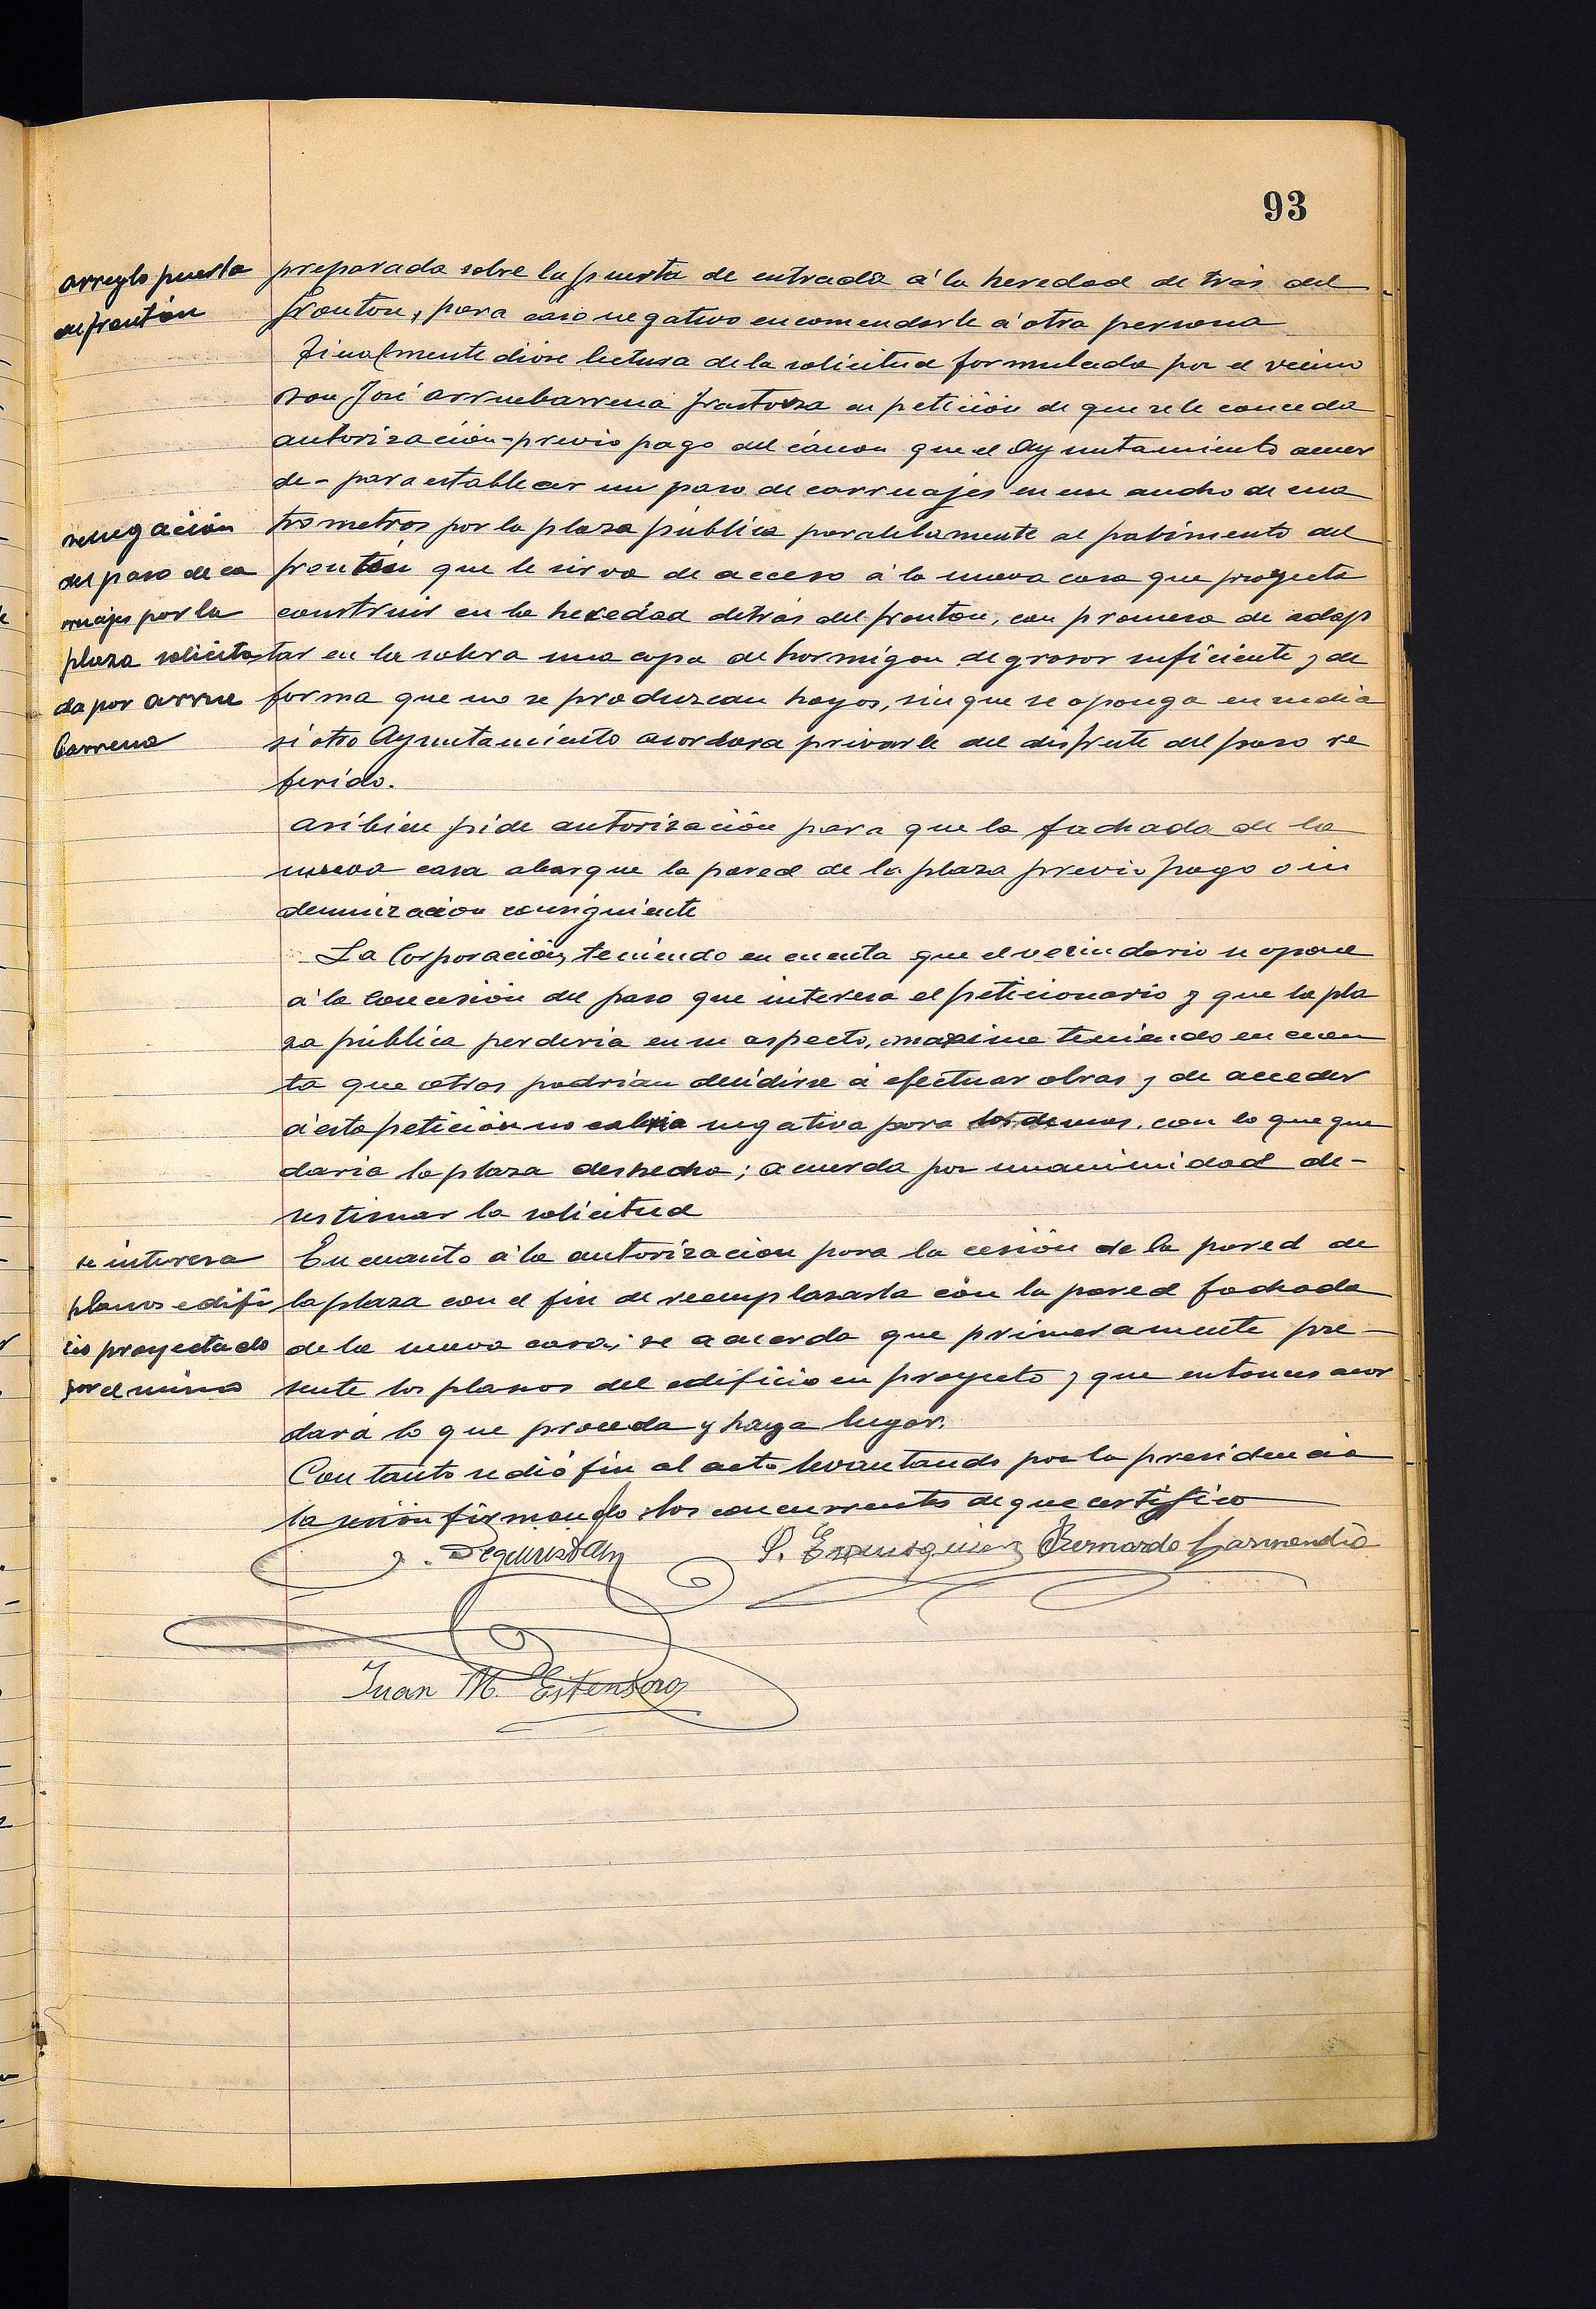 93
arreglo puerta
en frontón
preparada sobre la puerta de entrada á la heredad de tras del
fronton, para caso negativo encomendarle á otra persona
Finalmente dióse lectura de la solicitud formulada por el vecino
Don José Arruebarrena en petición de que se le conceda
autorización-previo pago del cánon que el Ayuntamiento acuer
de- para establecer un paso de carruajes en un ancho de cua
tro metros por la plaza pública paralelamente al pabimento del
frontón que le sirva de acceso á la nueva casa que proyecta
construir en la heredad detrás del fronton, con promesa de adap
tar en la solera una capa de hormigon de grosor suficiente y de
forma que no se produzcan hoyos, sin que se oponga en nada
si otro Ayuntamiento acordara privarle del disfrute del paso re
ferido.
denegación
del paso de ca
rruajes por la
plaza solicita
da por Arrue
barrena
Asibien pide autorización para que la fachada de la
nueva casa abarque la pared de la plaza previo pago o in
demnizacion consiguiente
La Corporación, teniendo en cuenta que el vecindario se opone
á la concesión del paso que interesa el peticionario y que la pla
za pública perderia en su aspecto, maxime teniendo en cuen
ta que otros podrian decidirse á efectuar obras y de acceder
á esta petición no cabria negativa para los demas, con lo que que
daria la plaza deshecha; acuerda por unanimidad de-
sestimar la solicitud
se interesa
planos edifi
cio proyectado
por el mismo
En cuanto á la autorizacion para la cesión de la pared de
la plaza con el fin de reemplazarla con la pared fachada
de la nueva casa; se acuerda que primeramente pre-
sente los planos del edificio en proyecto y que entonces acor
dará lo que proceda y haya lugar.
Con tanto se dió fin al acto levantando por la presidencia
la sesión firmando los concurrentes de que certifico
Bernardo Garmendia
Juan M. Estensoro